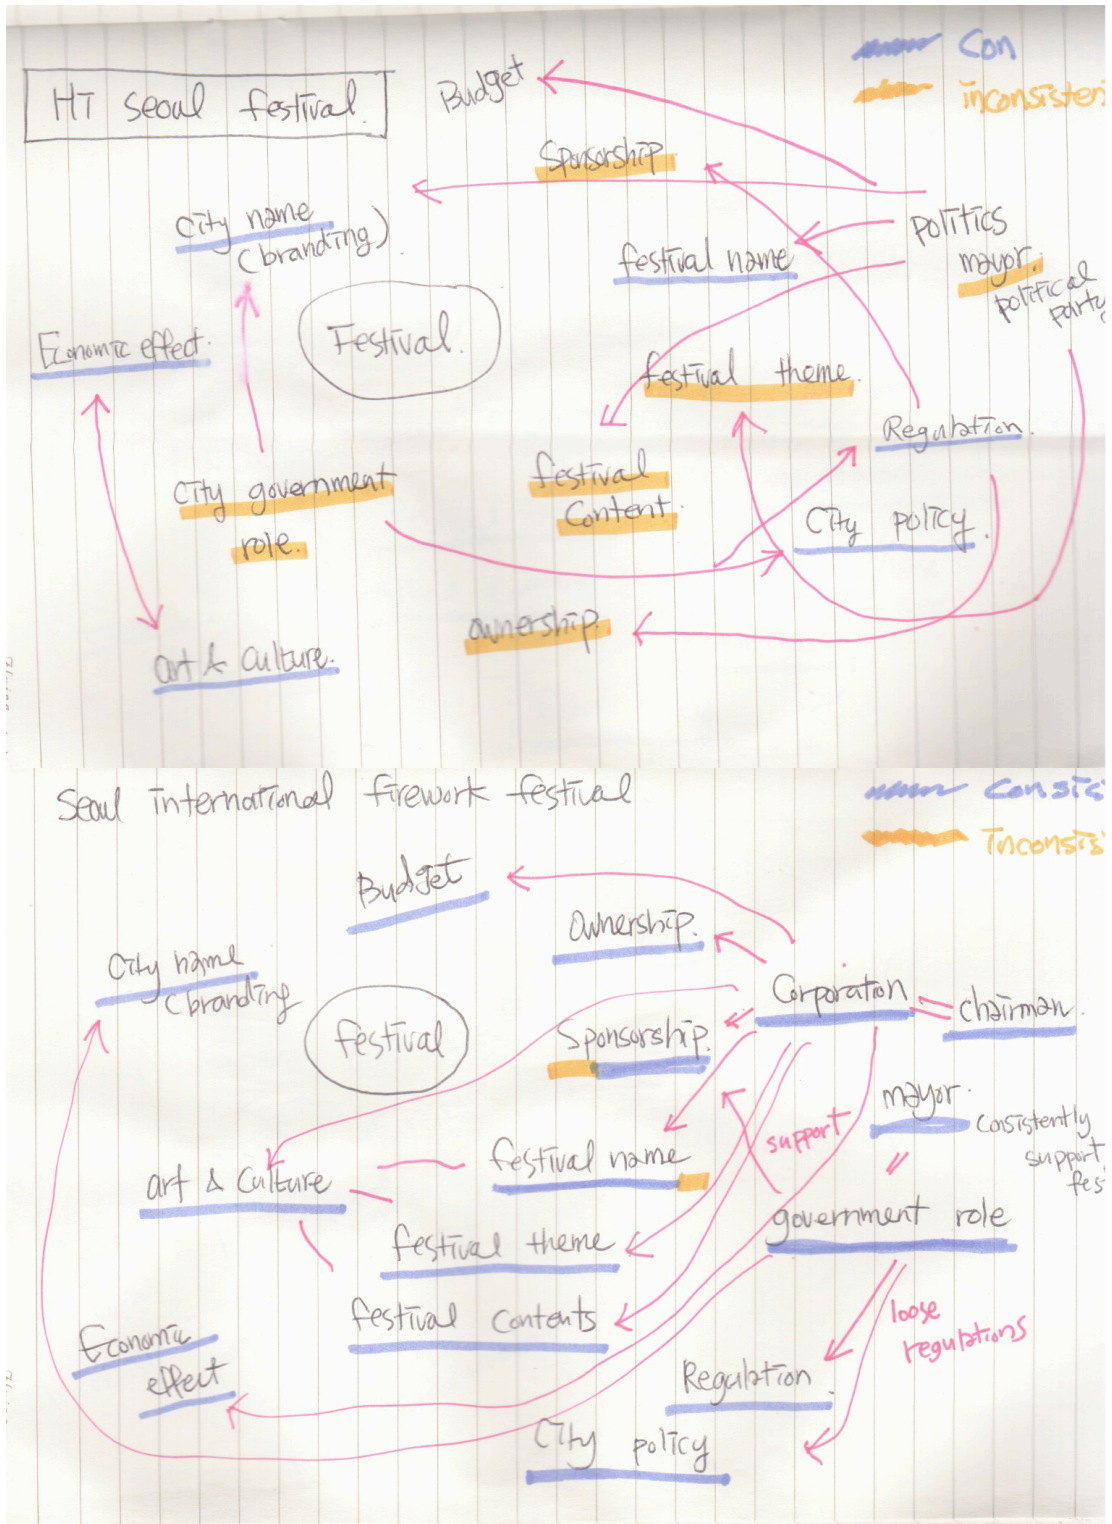 Hi seoul festival.
Con
inconsisten
Budget
Sponsorship
City name
(branding)
festival name
politics
mayor.
political
party
Economic effect.
Festival.
festival theme.
Regulation.
City government
role.
festival
Content.
City policy.
ownership.
art & culture.
Seoul international firework festival
Consis
inconsis
Budget
Ownership.
City name
(branding
Corporation
chairman.
festival
Sponsorship.
mayor.
Consistently
support
fes
support
art & Culture
festival name
government role
festival theme
festival contents
loose
regulations
Economic
effect
Regulation.
City policy